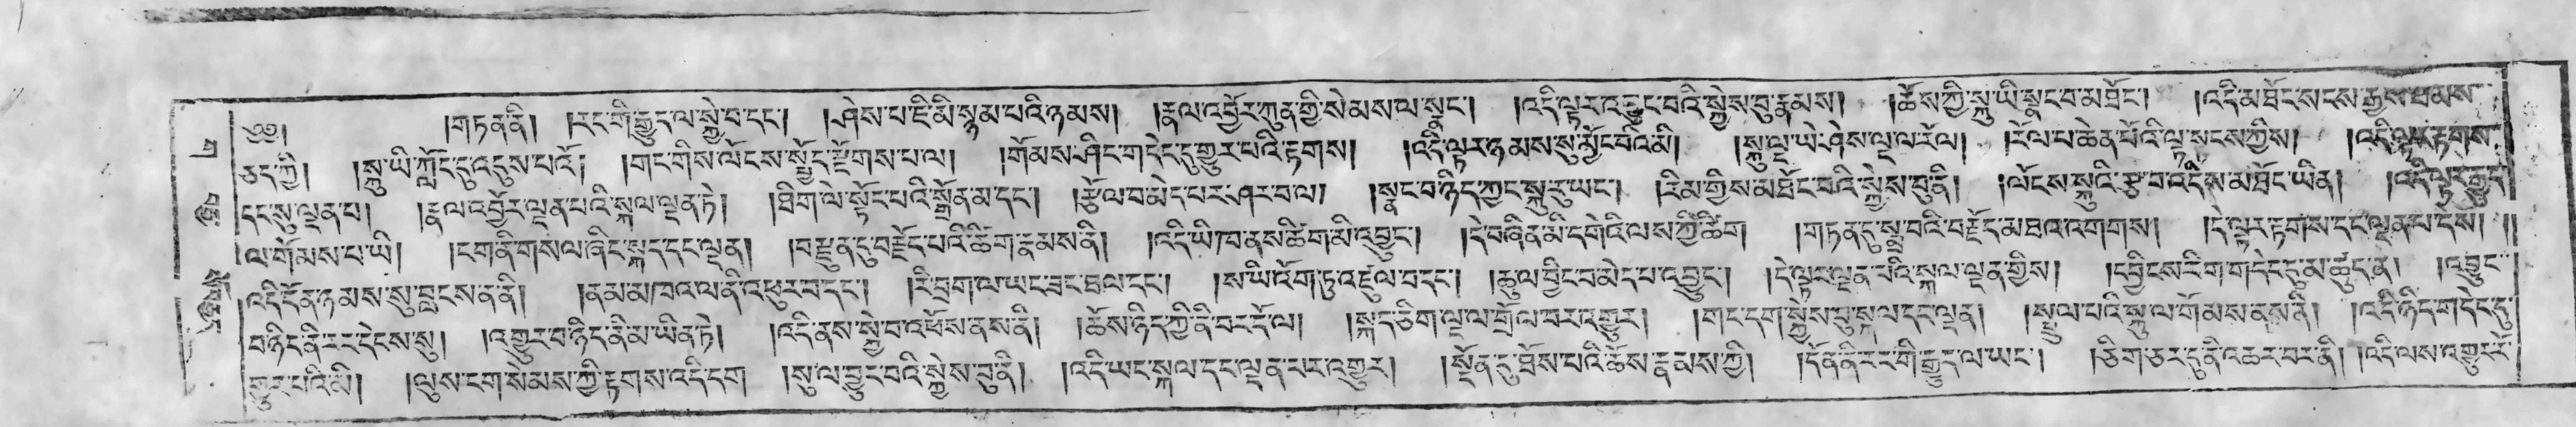 ༄༅། །གཏན་ནི། །རང་གི་རྒྱུད་ལ་སྐྱེ་བ་དང་། །ཤེས་པ་ཇི་མི་སྙམ་པའི་ཉམས། །རྣལ་འབྱོར་ཀུན་གྱི་སེམས་ལ་སྣང་། །འདི་ལྟར་འབྱུང་བའི་སྐྱེས་བུ་རྣམས། །ཆོས་ཀྱི་སྐུ་ཡི་སྣང་བ་མཐོང་། །འདི་མཐོང་སངས་རྒྱས་ཐམས་
ཅད་ཀྱི། །སྐུ་ཡི་ཀློང་དུ་འདུས་པའོ། །གང་གིས་ལོངས་སྤྱོད་རྫོགས་པ་ལ། །གོམས་ཤིང་གདེང་དུ་གྱུར་པའི་རྟགས། །འདི་ལྟར་ཉམས་སུ་མྱོང་བའི་མི། །སྐུ་ལྔ་ཡེ་ཤེས་ལྔ་ལ་རོལ། །རོལ་པ་ཆེན་པོའི་ལྟ་སྟངས་ཀྱིས། །འདི་ལྟར་རྟགས་
དང་སུ་ལྡན་པ། །རྣལ་འབྱོར་ལྡན་པའི་སྐལ་ལྡན་ཏེ། །ཐིག་ལེ་སྟོང་པའི་སྒྲོན་མ་དང་། །རྩོལ་བ་མེད་པར་ཤར་བ་ལ། །སྣང་བ་ཉིད་ཀྱང་སྐུ་རུ་ཡང་། །རིམ་གྱིས་མཐོང་བའི་སྐྱེས་བུ་ནི། །ལོངས་སྐུའི་རྩ་བ་འདིས་མཐོང་ཡིན། །འདི་ལྟར་རྒྱུད་
ལ་གོམས་པ་ཡི། །ངག་ནི་གསལ་ཞིང་སྐད་དང་ལྡན། །བརྫུན་དུ་བརྗོད་པའི་ཚིག་རྣམས་ནི། །འདི་ཡི་ཁ་ནས་ཚིག་མི་འབྱུང་། །དེ་བཞིན་མི་དགེའི་ལས་ཀྱི་ཚིག །གཏན་དུ་སྨྲ་བའི་བརྗོད་མཐའ་འགགས། །དེ་ལྟར་རྟགས་དང་ལྡན་པ་དེས། །
འདི་དོན་ཉམས་སུ་བླངས་ན་ནི། །ནམ་མཁའ་ལ་ནི་འཕུར་བ་དང་། །རི་བྲག་ལ་ཡང་ཟང་ཐལ་དང་། །ས་ཡི་འོག་ཏུ་འཛུལ་བ་དང་། །ཆུ་ལ་བྱིང་བ་མེད་པ་འབྱུང་། །དེ་ལྟར་ལྡན་པའི་སྐལ་ལྡན་གྱིས། །དབྱིངས་རིག་གདེང་དུ་མ་ཚུད་ན། །འབྱུང་
བ་ཉིད་ནི་རང་དེངས་སུ། །འགྱུར་བ་ཉིད་ནི་མ་ཡིན་ཏེ། །འདི་ནས་སྐྱེ་བ་འཕོས་ནས་ནི། །ཆོས་ཉིད་ཀྱི་ནི་བར་དོ་ལ། །སྐད་ཅིག་ལྔ་ལ་གྲོལ་བར་འགྱུར། །གང་དག་སྐྱེས་བུ་སྐལ་དང་ལྡན། །སྤྲུལ་པའི་སྐུ་ལ་གོམས་ནས་ནི། །འདི་ཉིད་གདེང་དུ་
གྱུར་པའི་མི། །ལུས་ངག་སེམས་ཀྱི་རྟགས་འདི་དག །སུ་ལ་བྱུང་བའི་སྐྱེས་བུ་ནི། །འདི་ཡང་སྐལ་དང་ལྡན་པར་འགྱུར། །སྔོན་དུ་ཐོས་པའི་ཆོས་རྣམས་ཀྱི། །དོན་ནི་རང་གི་རྒྱུད་ལ་ཡང་། །ཅིག་ཅར་དུ་ནི་འཆར་བར་ནི། །འདི་ལས་འགྱུར་རོ་